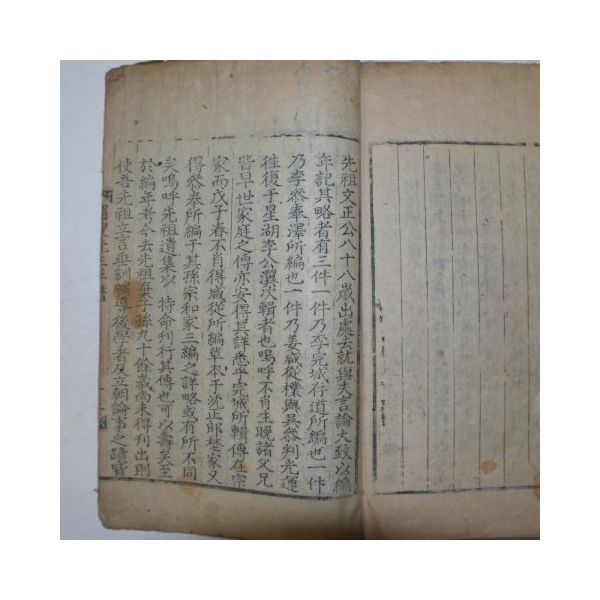 先祖文正公八十八歲出處去就與夫言論大致以編
年記其略者有三件一件乃李完城行道所編也一件
乃李參奉澤所編也一件乃姜咸從樸與吳參判光運
往復于星湖李公瀷次輯者也嗚呼不肖生晚諸父兄
皆早世家庭之傳亦安得其詳悉乎完城所輯傳在宗
家而戊子春不肖得咸從所編草本于沈正郎楚家又
得參奉所編于其孫宗和家三編之詳略或有所不同
矣嗚呼先祖遺集以 特命刊行其傳也可以壽矣至
於編年考今去先祖棄子孫九十餘歲尚未得刊出則
使吾先祖立言垂訓輔導後學者及立朝論事之蹟實
眉叟先生年譜